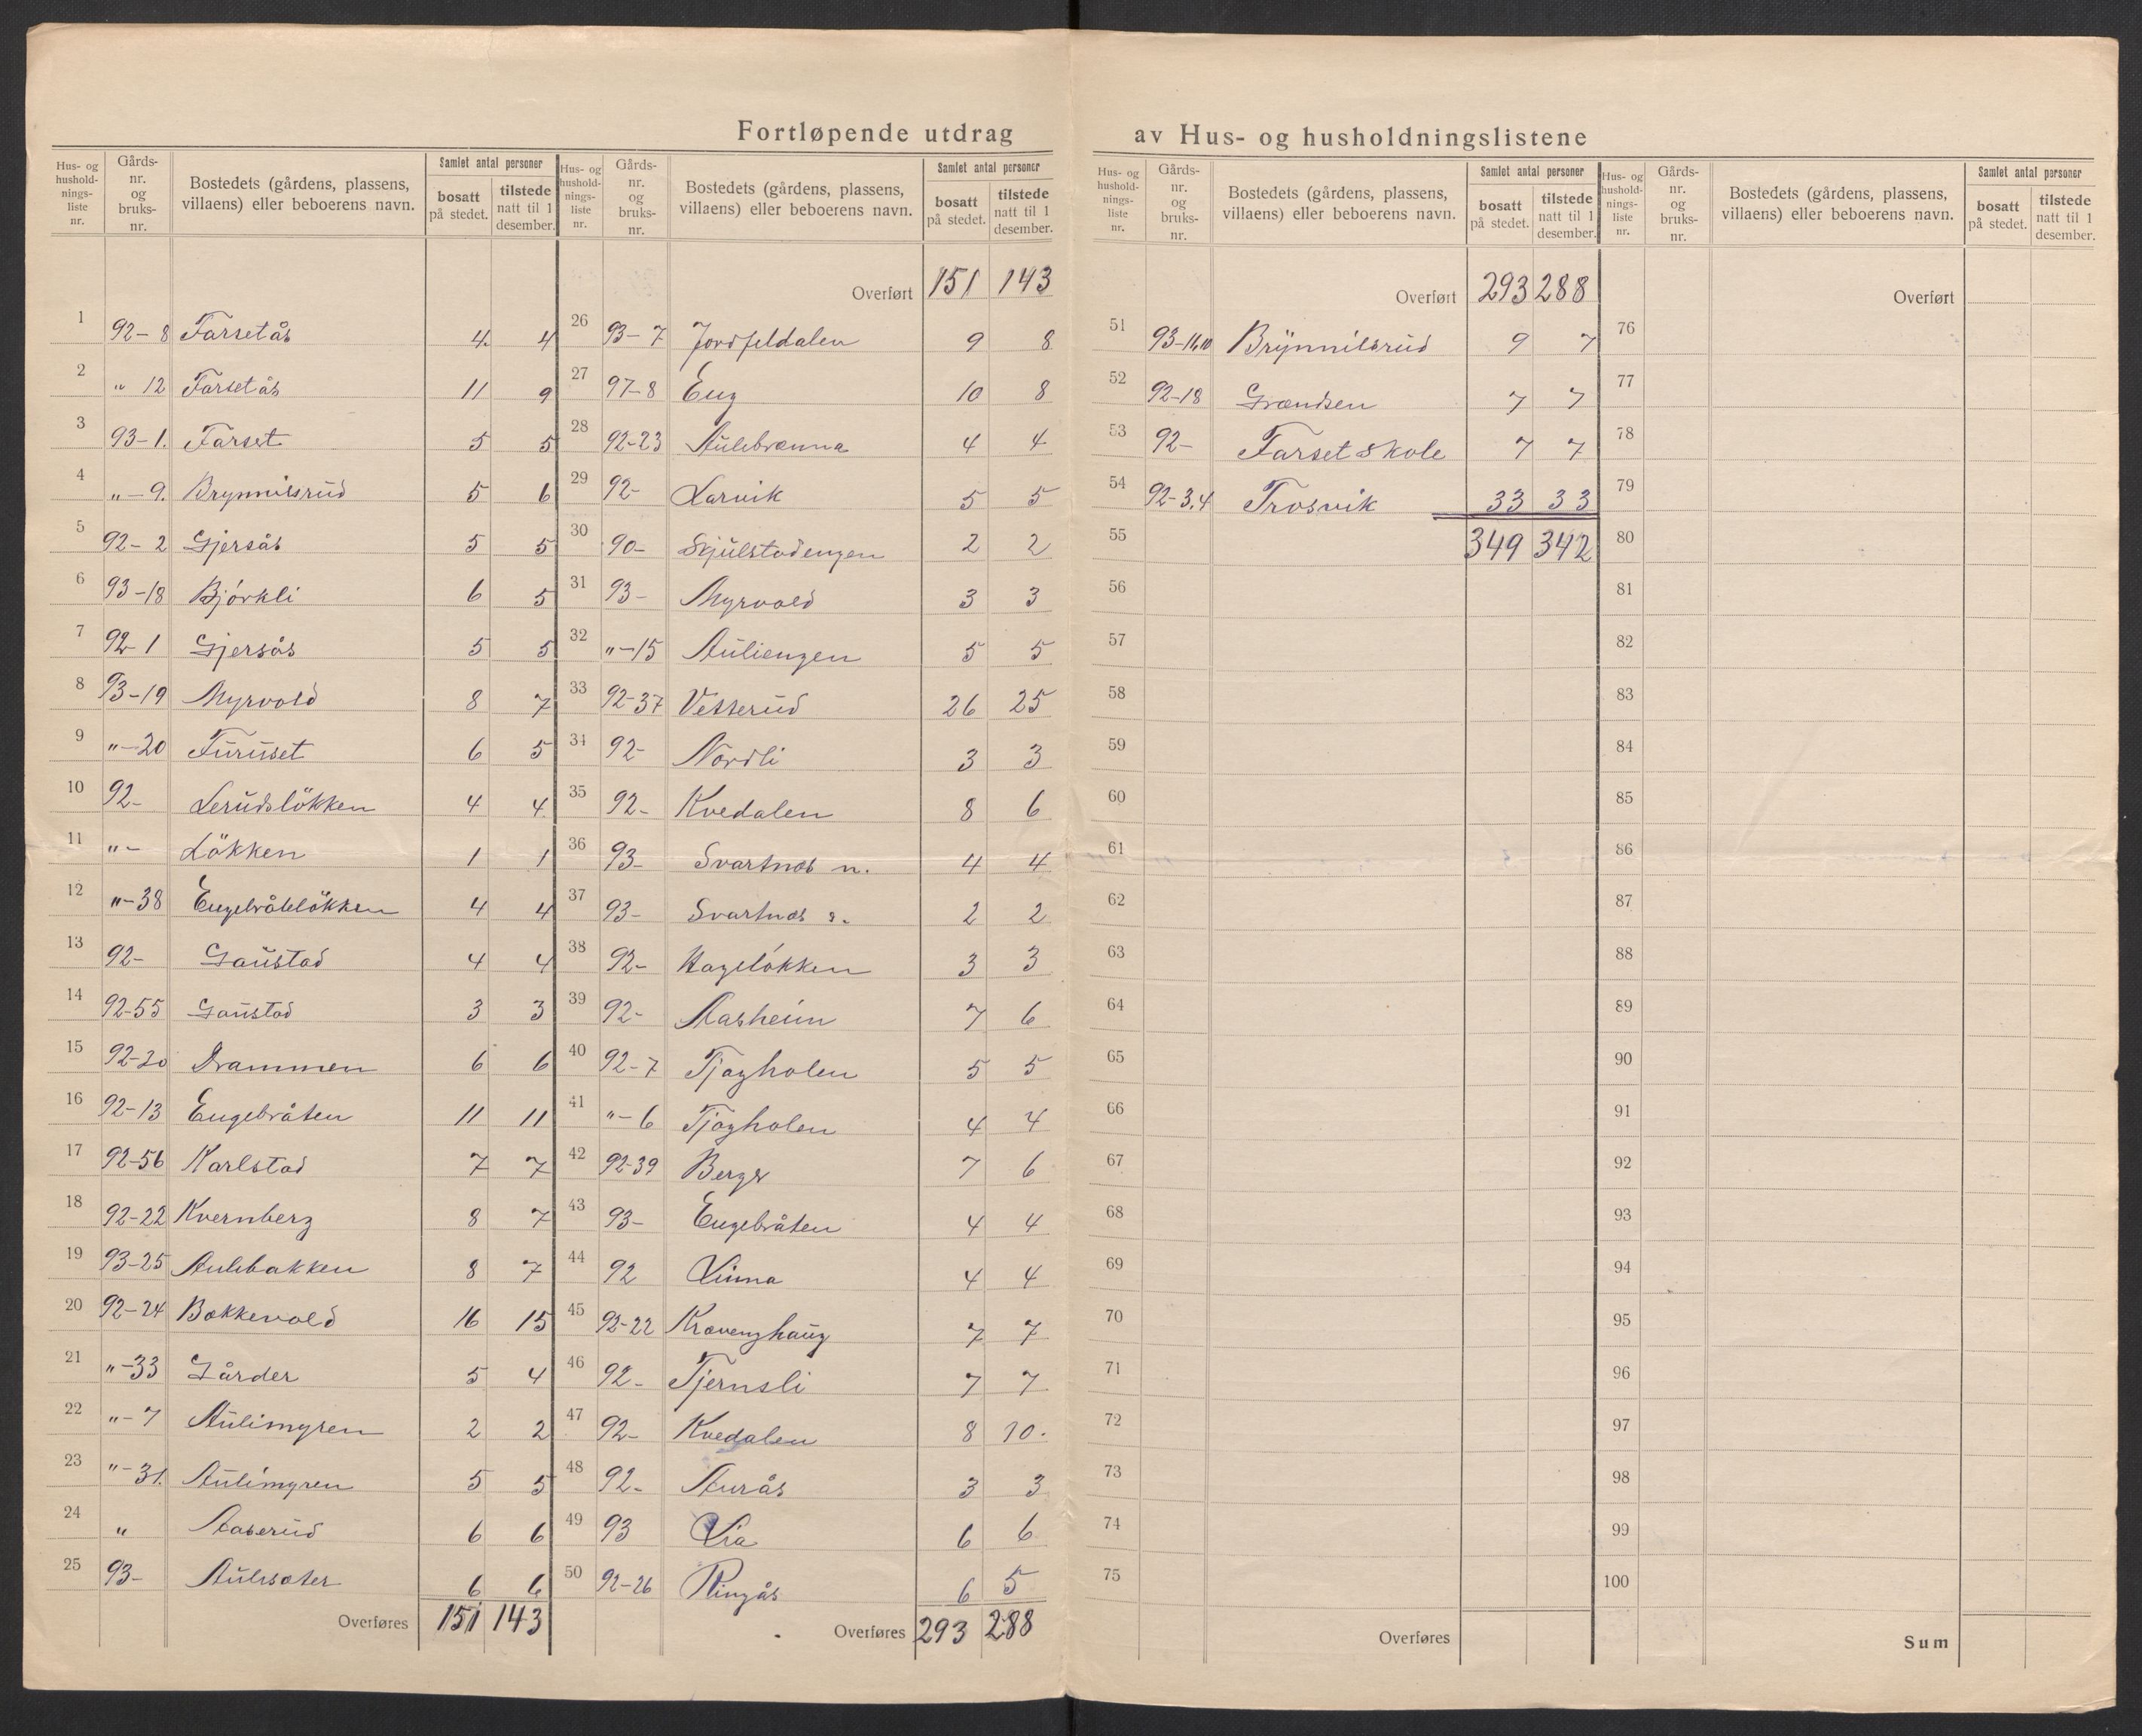 Fortløpende utdrag av Hus- og husholdningslistene
Hus- og husholdningsliste nr. | Gårds-nr. og bruks-nr. | Bostedets (gårdens, plassens, villaens) eller beboerens navn. | Samlet antal personer: bosatt på stedet. | tilstede natt til 1 desember.
1 92-8 Farsetås 4 4
2 " 12 Farsetås 11 9
3 93-1. Farset 5 5
4 "-9. Brynnilsrud 5 6
5 92-2 Gjersås 5 5
6 93-18 Björkli 6 5
7 92-1 Gjersås 5 5
8 93-19 Myrvold 8 7
9 "-20 Furuset 6 5
10 92- Lerudslökken 4 4
11 "- Lökken 1 1
12 "-38 Engebråtelökken 4 4
13 92- Gaustad 4 4
14 92-55 Gaustad 3 3
15 92-20 Drammen 6 6
16 92-13 Engebråten 11 11
17 92-56 Karlstad 7 7
18 92-22 Kvernberg 8 7
19 93-25 Aulibakken 8 7
20 92-24 Bakkevold 16 15
21 "-33 Gårder 5 4
22 "-7 Aulimyren 2 2
23 "-31. Aulimyren 5 5
24 " Aaserud 6 6
25 93- Aulisæter 6 6
Overføres 151 143
Hus- og husholdningsliste nr. | Gårds-nr. og bruks-nr. | Bostedets (gårdens, plassens, villaens) eller beboerens navn. | Samlet antal personer: bosatt på stedet. | tilstede natt til 1 desember.
Overført 151 143
26 93-7 Jordfeldalen 9 8
27 97-8 Eng 10 8
28 92-23 Aulebrænna 4 4
29 92- Larvik 5 5
30 90- Skjulstadengen 2 2
31 93- Myrvold 3 3
32 "-15 Auliengen 5 5
33 92-37 Vesserud 26 25
34 92- Nordli 3 3
35 92- Kvedalen 8 6
36 93- Svartnæs n. 4 4
37 93- Svartnæs s. 2 2
38 92- Hagelökken 3 3
39 92- Aasheim 7 6
40 92-7 Tjagholen 5 5
41 "-6 Tjagholen 4 4
42 92-39 Berger 7 6
43 93- Engebråten 4 4
44 92 Linna 4 4
45 92-22 Kravenghaug 7 7
46 92- Tjernsli 7 7
47 92- Kvedalen 8 10.
48 92- Aurås 3 3
49 93 Lia 6 6
50 92-26 Ringås 6 5
Overføres 293 288
Hus- og husholdningsliste nr. | Gårds-nr. og bruks-nr. | Bostedets (gårdens, plassens, villaens) eller beboerens navn. | Samlet antal personer: bosatt på stedet. | tilstede natt til 1 desember.
Overført 293 288
51 93-11,10 Brynnilsrud 9 7
52 92-18 Grændsen 7 7
53 92- Farset skole 7 7
54 92-3.4 Trosvik 33 33
55 349 342
56
57
58
59
60
61
62
63
64
65
66
67
68
69
70
71
72
73
74
75
Overføres
Hus- og husholdningsliste nr. | Gårds-nr. og bruks-nr. | Bostedets (gårdens, plassens, villaens) eller beboerens navn. | Samlet antal personer: bosatt på stedet. | tilstede natt til 1 desember.
Overført
76
77
78
79
80
81
82
83
84
85
86
87
88
89
90
91
92
93
94
95
96
97
98
99
100
Sum